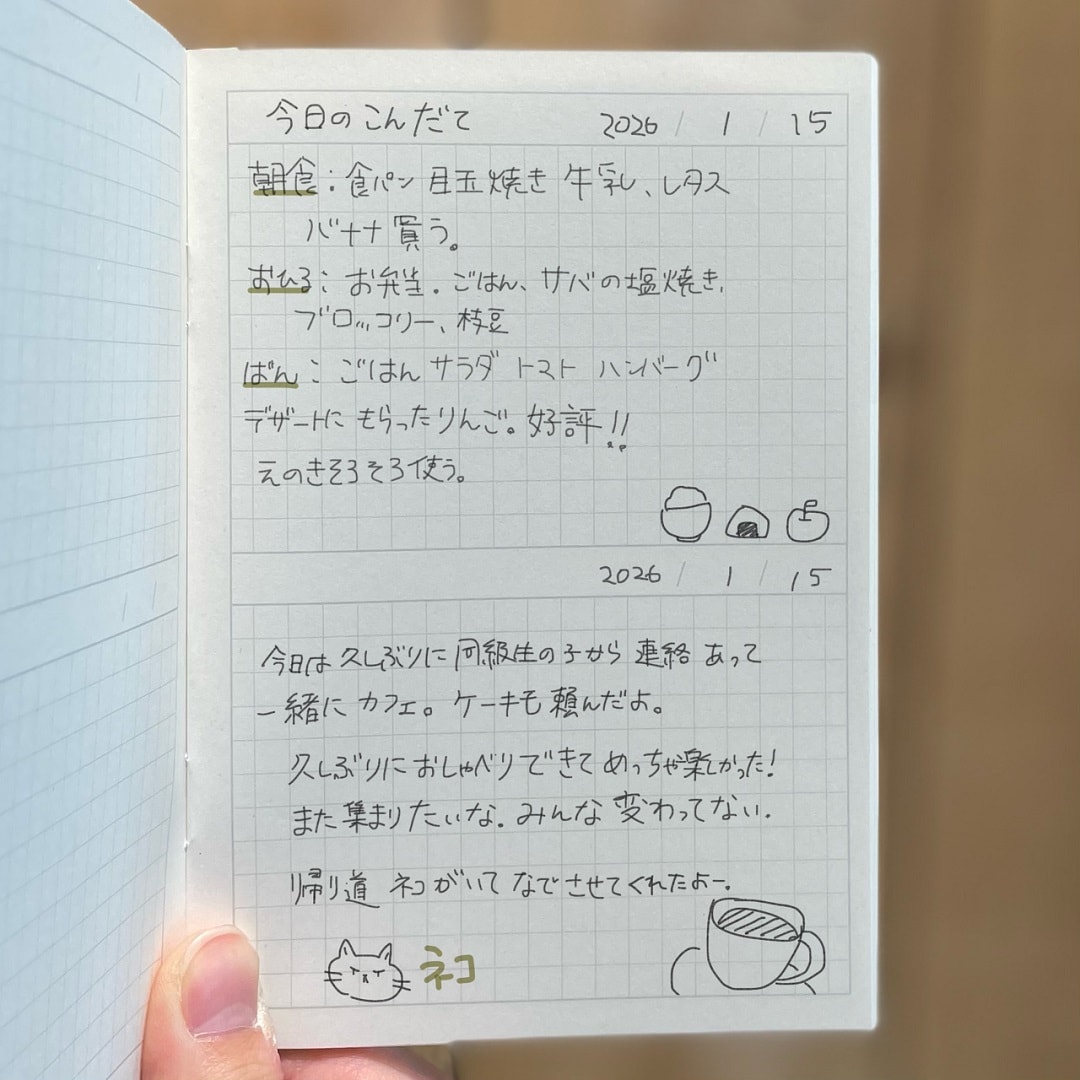 今日のこんだて 2026 / 1 / 15
朝食：食パン 目玉焼き 牛乳、レタス
バナナ買う。
おひる：お弁当。ごはん、サバの塩焼き、
ブロッコリー、枝豆
ばん：ごはん サラダ トマト ハンバーグ
デザートに もらったりんご。好評!!
えのきそろそろ使う。
2026 / 1 / 15
今日は 久しぶりに 同級生の子から 連絡 あって
一緒に カフェ。ケーキも 頼んだよ。
久しぶりに おしゃべりできて めっちゃ楽しかった!
また 集まりたいな。みんな 変わってない。
帰り道 ネコがいて なでさせてくれたよー。
ネコ